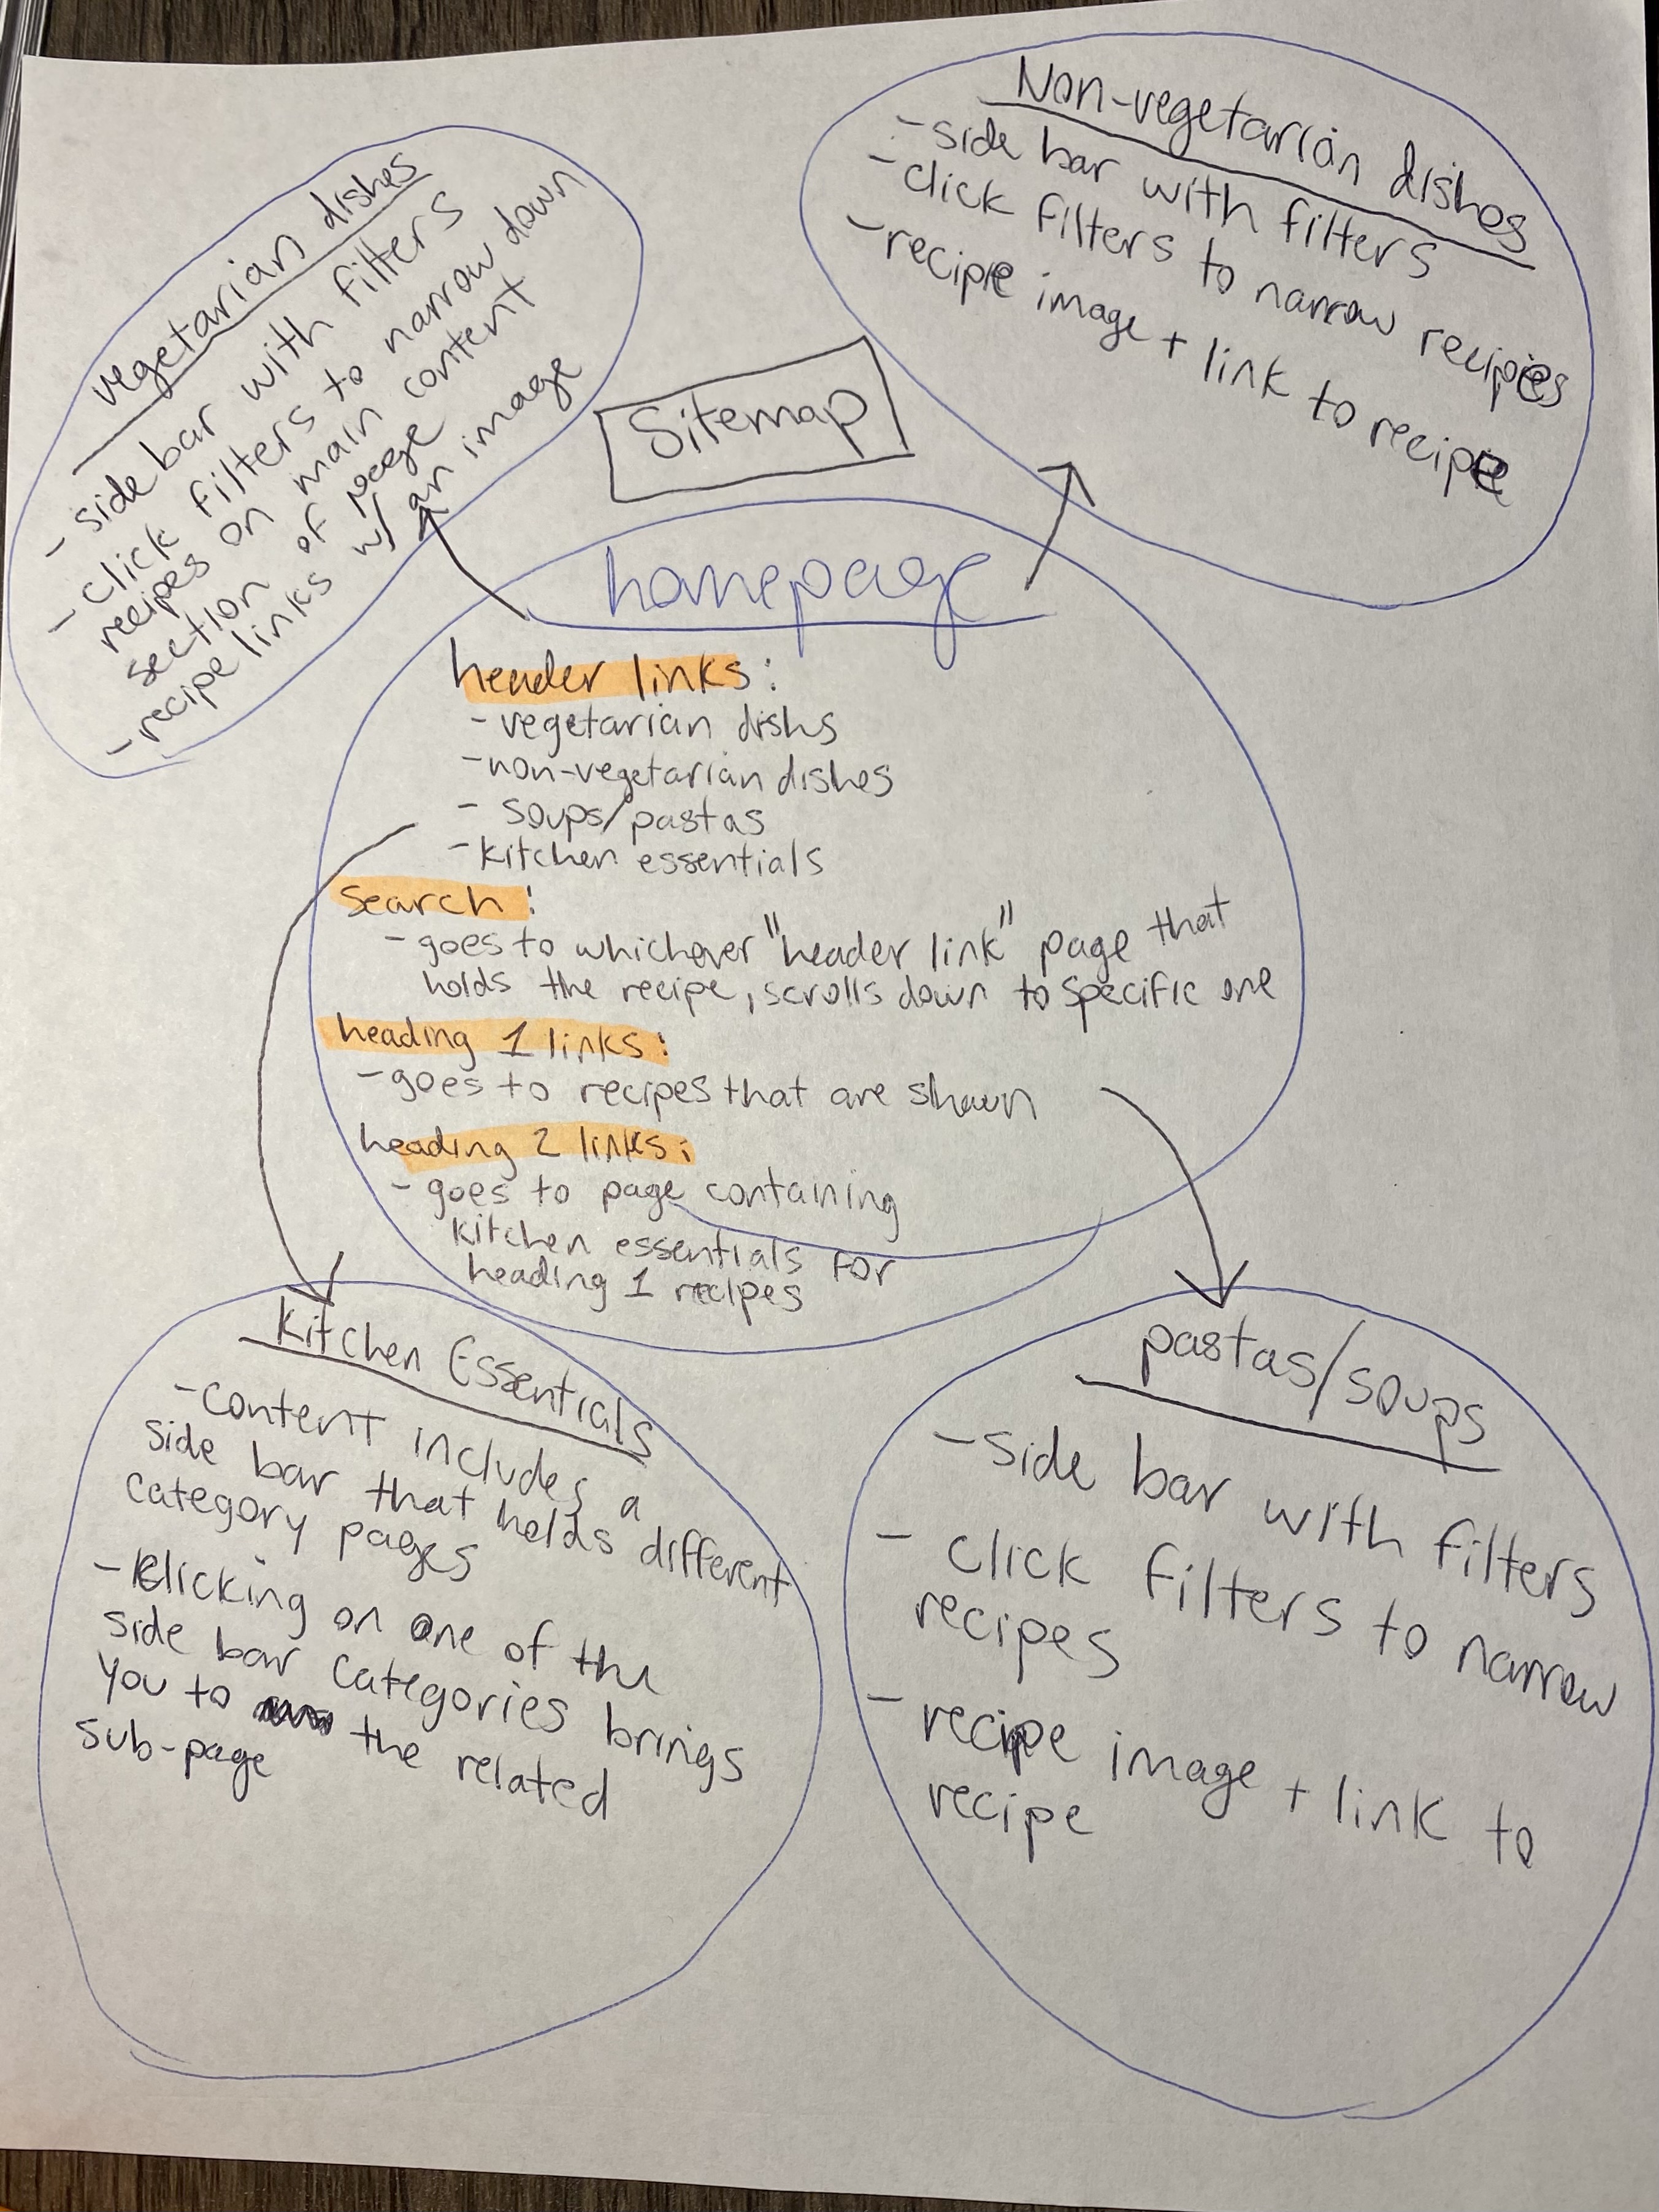 Sitemap
Vegetarian dishes
- side bar with filters
- click filters to narrow down
recipes on main content
section of page
- recipe links w/ an image
Non-vegetarian dishes
- side bar with filters
- click filters to narrow recipes
- recipe image + link to recipe
homepage
header links:
- vegetarian dishs
- non-vegetarian dishes
- soups/pastas
- kitchen essentials
Search:
- goes to whichever "header link" page that
holds the recipe, scrolls down to specific one
heading 1 links:
- goes to recipes that are shown
heading 2 links:
- goes to page containing
kitchen essentials for
heading 1 recipes
Kitchen Essentials
- content includes a
side bar that holds different
category pages
- clicking on one of the
side bar categories brings
you to the related
sub-page
pastas/soups
- side bar with filters
- click filters to narrow
recipes
- recipe image + link to
recipe